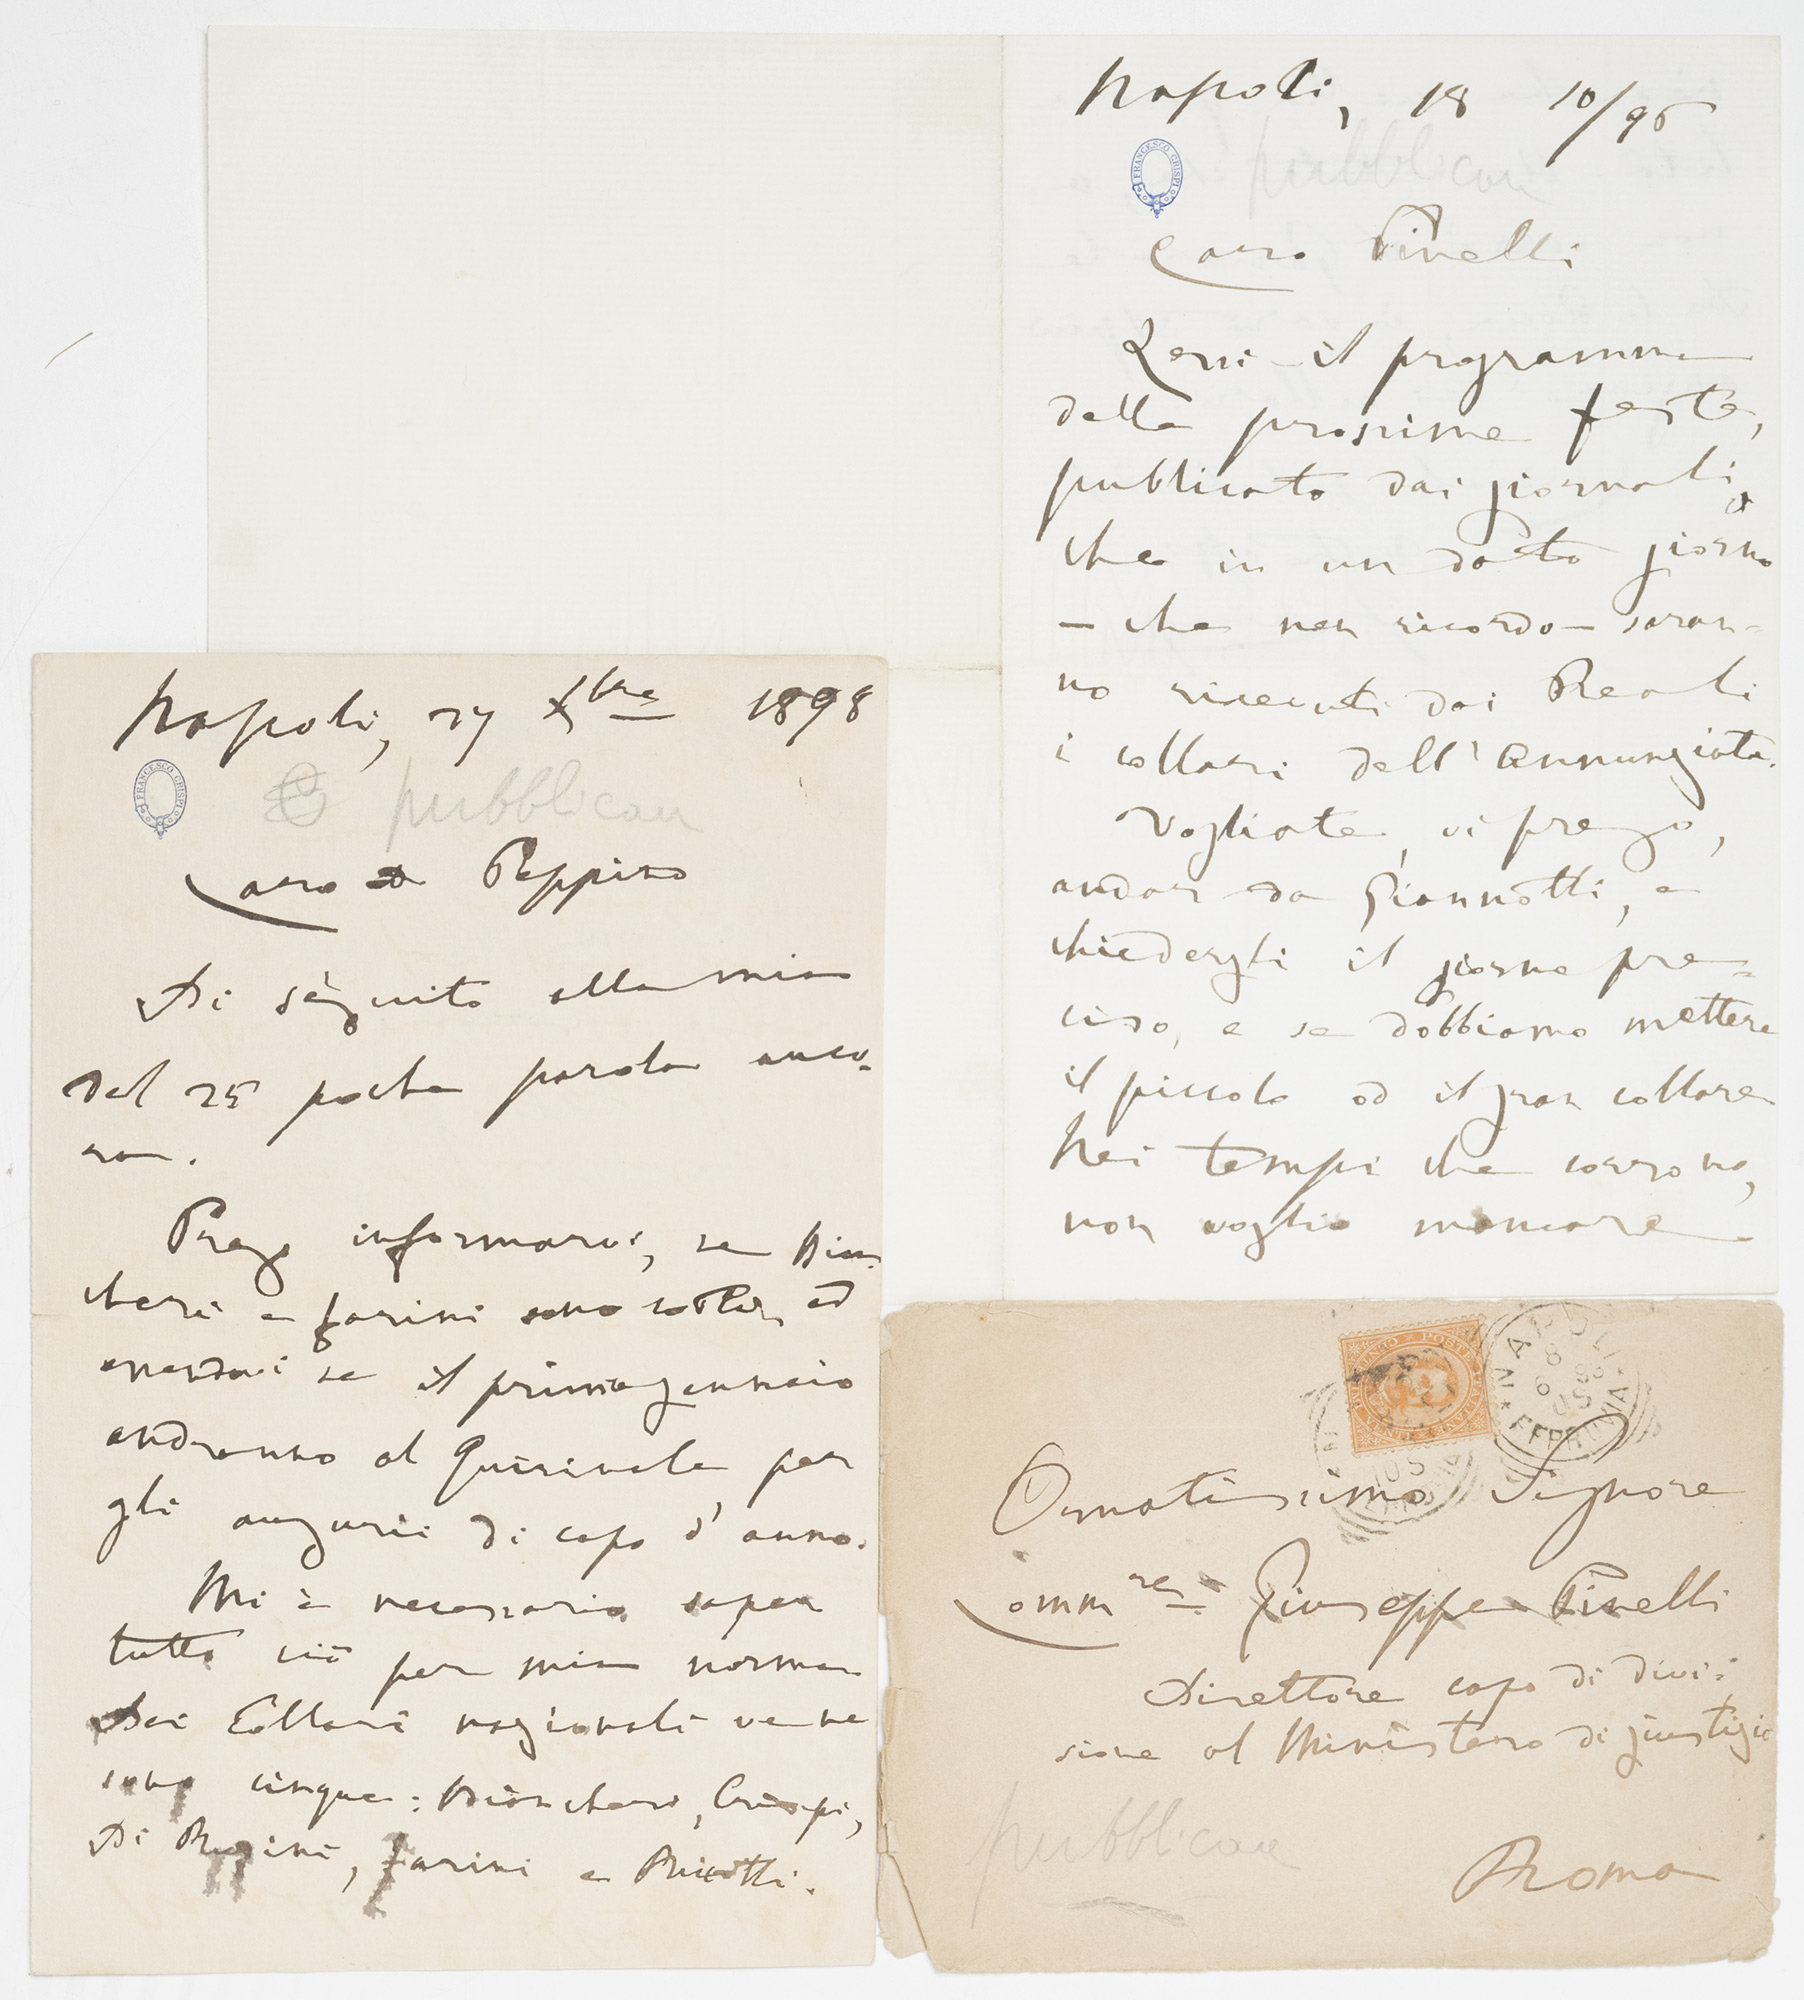 Napoli, 18 10/96
FRANCESCO CRISPI
pubblicare
Caro Pinelli
Lessi il programma
delle prossime feste,
publicato dai giornali,
che in un dato giorno
— che non ricordo — saran-
no ricevuti dai Reali
i collari dell'Annunziata.
Vogliate, vi prego,
andar da Giannotti, e
chiedergli il giorno pre-
ciso, e se dobbiamo mettere
il piccolo od il gran collare
Nei tempi che corrono,
non voglio mancare
Napoli, 27 Xbre 1898
FRANCESCO CRISPI
pubblicare
Caro Peppino
Di séguito alla mia
del 25 poche parole anco-
ra.
Prego informarvi, se Bian-
cheri e Farini sono costà ed
essendovi se il primo gennaio
andranno al Quirinale, per
gli augurii di capo d'anno.
Mi è necessario saper
tutto ciò per mia norma
Dei Collari nazionali ve ne
sono cinque: Biancheri, Crispi,
Di Rudinì, Farini e Ricotti.
POSTE ITALIANE
NAPOLI
FERROVIA
Ornatissimo Signore
Commre Giuseppe Pinelli
Direttore capo di divi-
sione al Ministero di giustizia
pubblicare
Roma